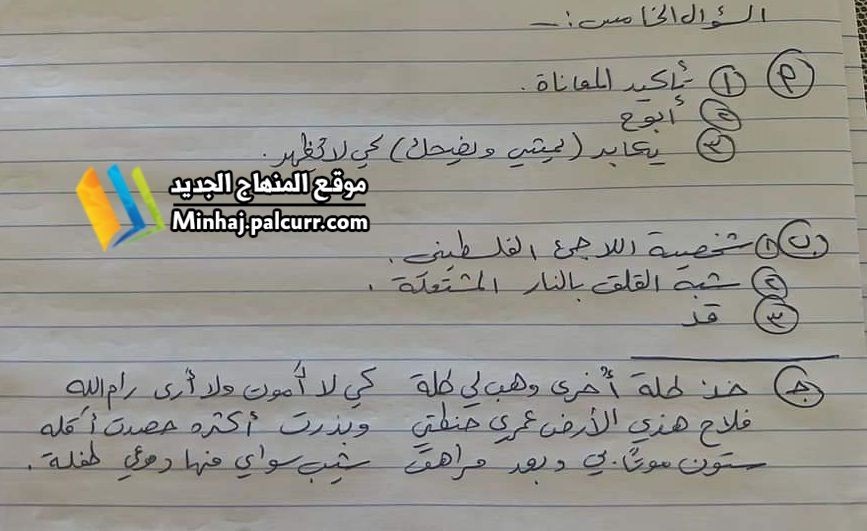 السؤال الخامس :-
أ ١ تأكيد المعاناة .
٢ أبوح
٣ يكابد ( يمشي ويضحك ) كي لا تظهر .
موقع المنهاج الجديد
Minhaj.palcurr.com
ب ١ شخصية اللاجئ الفلسطيني .
٢ شبه القلق بالنار المشتعلة .
٣ قد
ج خذ طلة أخرى وهب لي طلة كي لا أموت ولا أرى رام الله
فلاح هذي الأرض عمري حنطتي وبذرت أكثره حصدت أقله
ستون موتًا بي وبعد مراهق شيب سواي فها دموعي طفلة .